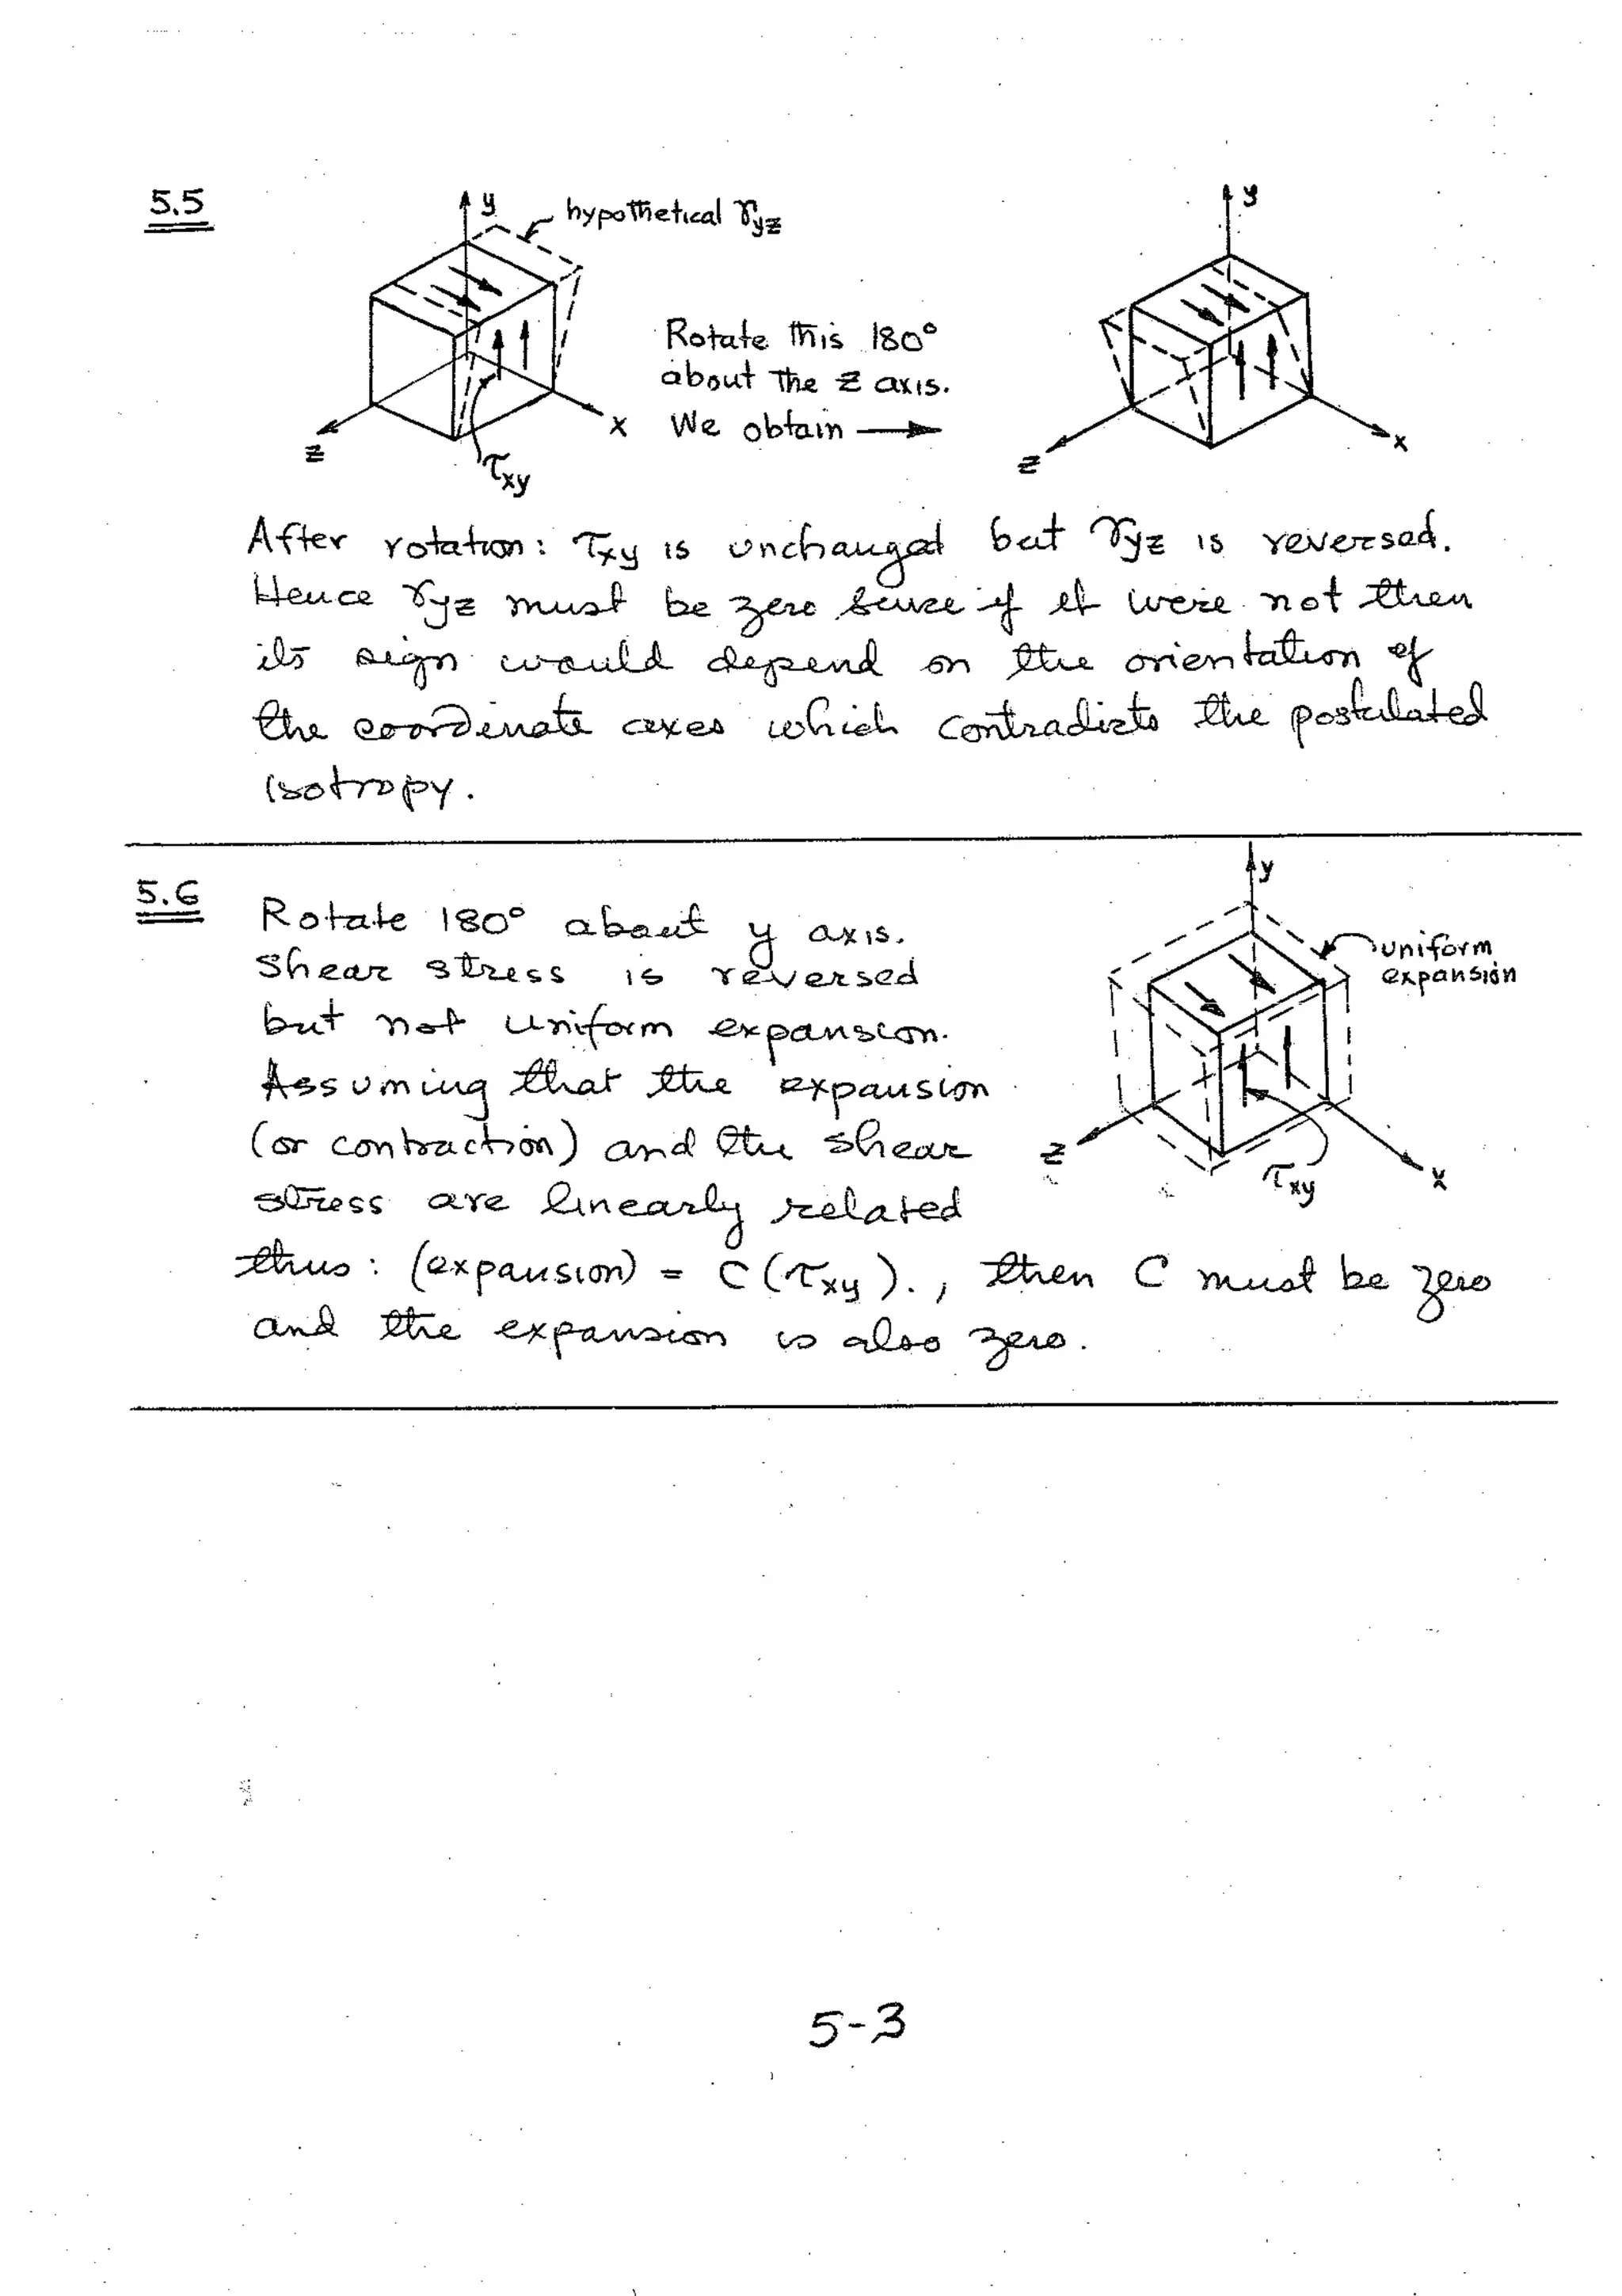 5.5
y
hypothetical γyz
y
Rotate this 180°
about the z axis.
We obtain →
x
z
τxy
x
z
After rotation: τxy is unchanged but γyz is reversed.
Hence γyz must be zero since if it were not then
its sign would depend on the orientation of
the coordinate axes which contradicts the postulated
isotropy.
5.6
y
Rotate 180° about y axis.
uniform
expansion
Shear stress is reversed
but not uniform expansion.
Assuming that the expansion
(or contraction) and the shear
z
τxy
x
stress are linearly related
thus: (expansion) = C(τxy)., then C must be zero
and the expansion is also zero.
5-3